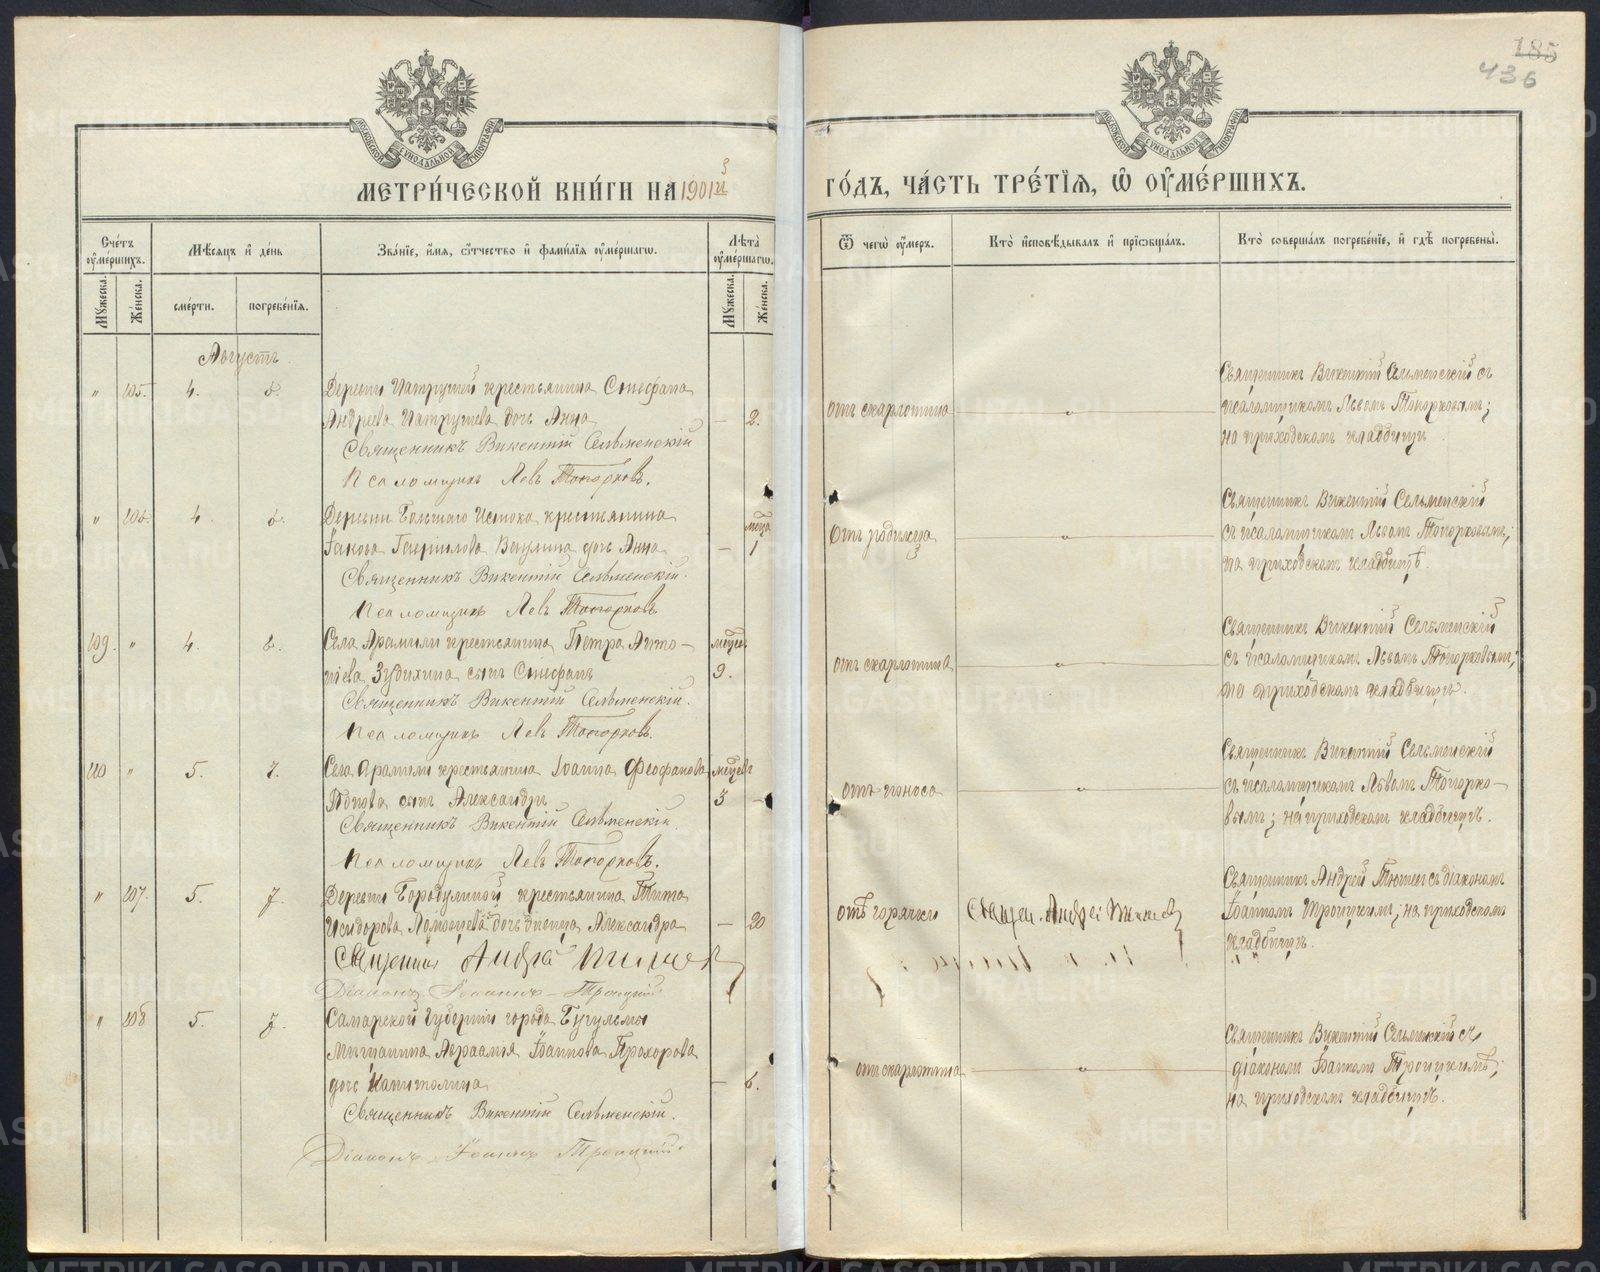 185
436
МЕТРИ́ЧЕСКОЙ КНИ́ГИ НА 1901 3 и҃
ГО́ДЪ, ЧА́СТЬ ТРЕ́ТІѦ, Ѡ҆ ОУ҆МЕ́РШИХЪ.
Счéтъ оу҆мéршихъ.
Мѣ́сяцъ и҆ дéнь
Звáніе, и҆́мя, ѻ҆́тчество и҆ фами́лія оу҆мéршагѡ.
Лѣ́та оу҆мéршагѡ.
Ѿ чегѡ̀ оу҆́меръ.
Кто̀ и҆сповѣ́дывалъ и҆ прїѡбщáлъ.
Кто̀ совершáлъ погребéніе, и҆ гдѣ̀ погребены̀.
Мꙋ́жеска.
Жéнска.
смéрти.
погребéнїя.
Мꙋ́жеска.
Жéнска.
Августъ
" 105. 4. 6.
Деревни Патрушей крестьянина Стефана
Андреева Патрушева дочь Анна
— 2.
Священникъ Викентій Сельменскій
Псаломщикъ Левъ Топорковъ.
отъ скарлатины
"
Священникъ Викентій Сельменскій съ
псаломщикомъ Львомъ Топорковымъ;
на приходскомъ кладбищѣ.
" 106. 4. 6.
Деревни Большаго Истока крестьянина
Іакова Гавріилова Ваулина дочь Анна
мѣсяца
— 1
Священникъ Викентій Сельменскій.
Псаломщикъ Левъ Топорковъ
Отъ родимца
"
Священникъ Викентій Сельменскій
съ псаломщикомъ Львомъ Топорковымъ;
на приходскомъ кладбищѣ.
109. " 4. 6.
Села Арамили крестьянина Петра Анто-
ніева Зудихина сынъ Стефанъ
мѣсяцевъ
9.
Священникъ Викентій Сельменскій.
Псаломщикъ Левъ Топорковъ.
отъ скарлатины
"
Священникъ Викентій Сельменскій
съ псаломщикомъ Львомъ Топорковымъ;
на приходскомъ кладбищѣ.
110 " 5. 7.
Села Арамили крестьянина Іоанна Феофанова
Попова сынъ Александръ
мѣсяцевъ
3 —
Священникъ Викентій Сельменскій.
Псаломщикъ Левъ Топорковъ.
отъ поноса
"
Священникъ Викентій Сельменскій
съ псаломщикомъ Львомъ Топорко-
вымъ; на приходскомъ кладбищѣ.
" 107. 5. 7.
Деревни Бородулиной крестьянина Тита
Исидорова дочь девица Александра
— 20
Священникъ Андрей
Діаконъ Іоаннъ Троицкій.
отъ горячки
Священ. Андрей
Священникъ Андрей съ діакономъ
Іоанномъ Троицкимъ; на приходскомъ
кладбищѣ.
" 108 5. 7.
Самарской губерніи города Бугульмы
мѣщанина Авраамія Іоаннова Прохорова
дочь Капитолина
— 6.
Священникъ Викентій Сельменскій.
Діаконъ Іоаннъ Троицкій.
отъ скарлатины
"
Священникъ Викентій Сельменскій съ
діакономъ Іоанномъ Троицкимъ;
на приходскомъ кладбищѣ.
METRIKI.GASO-URAL.RU